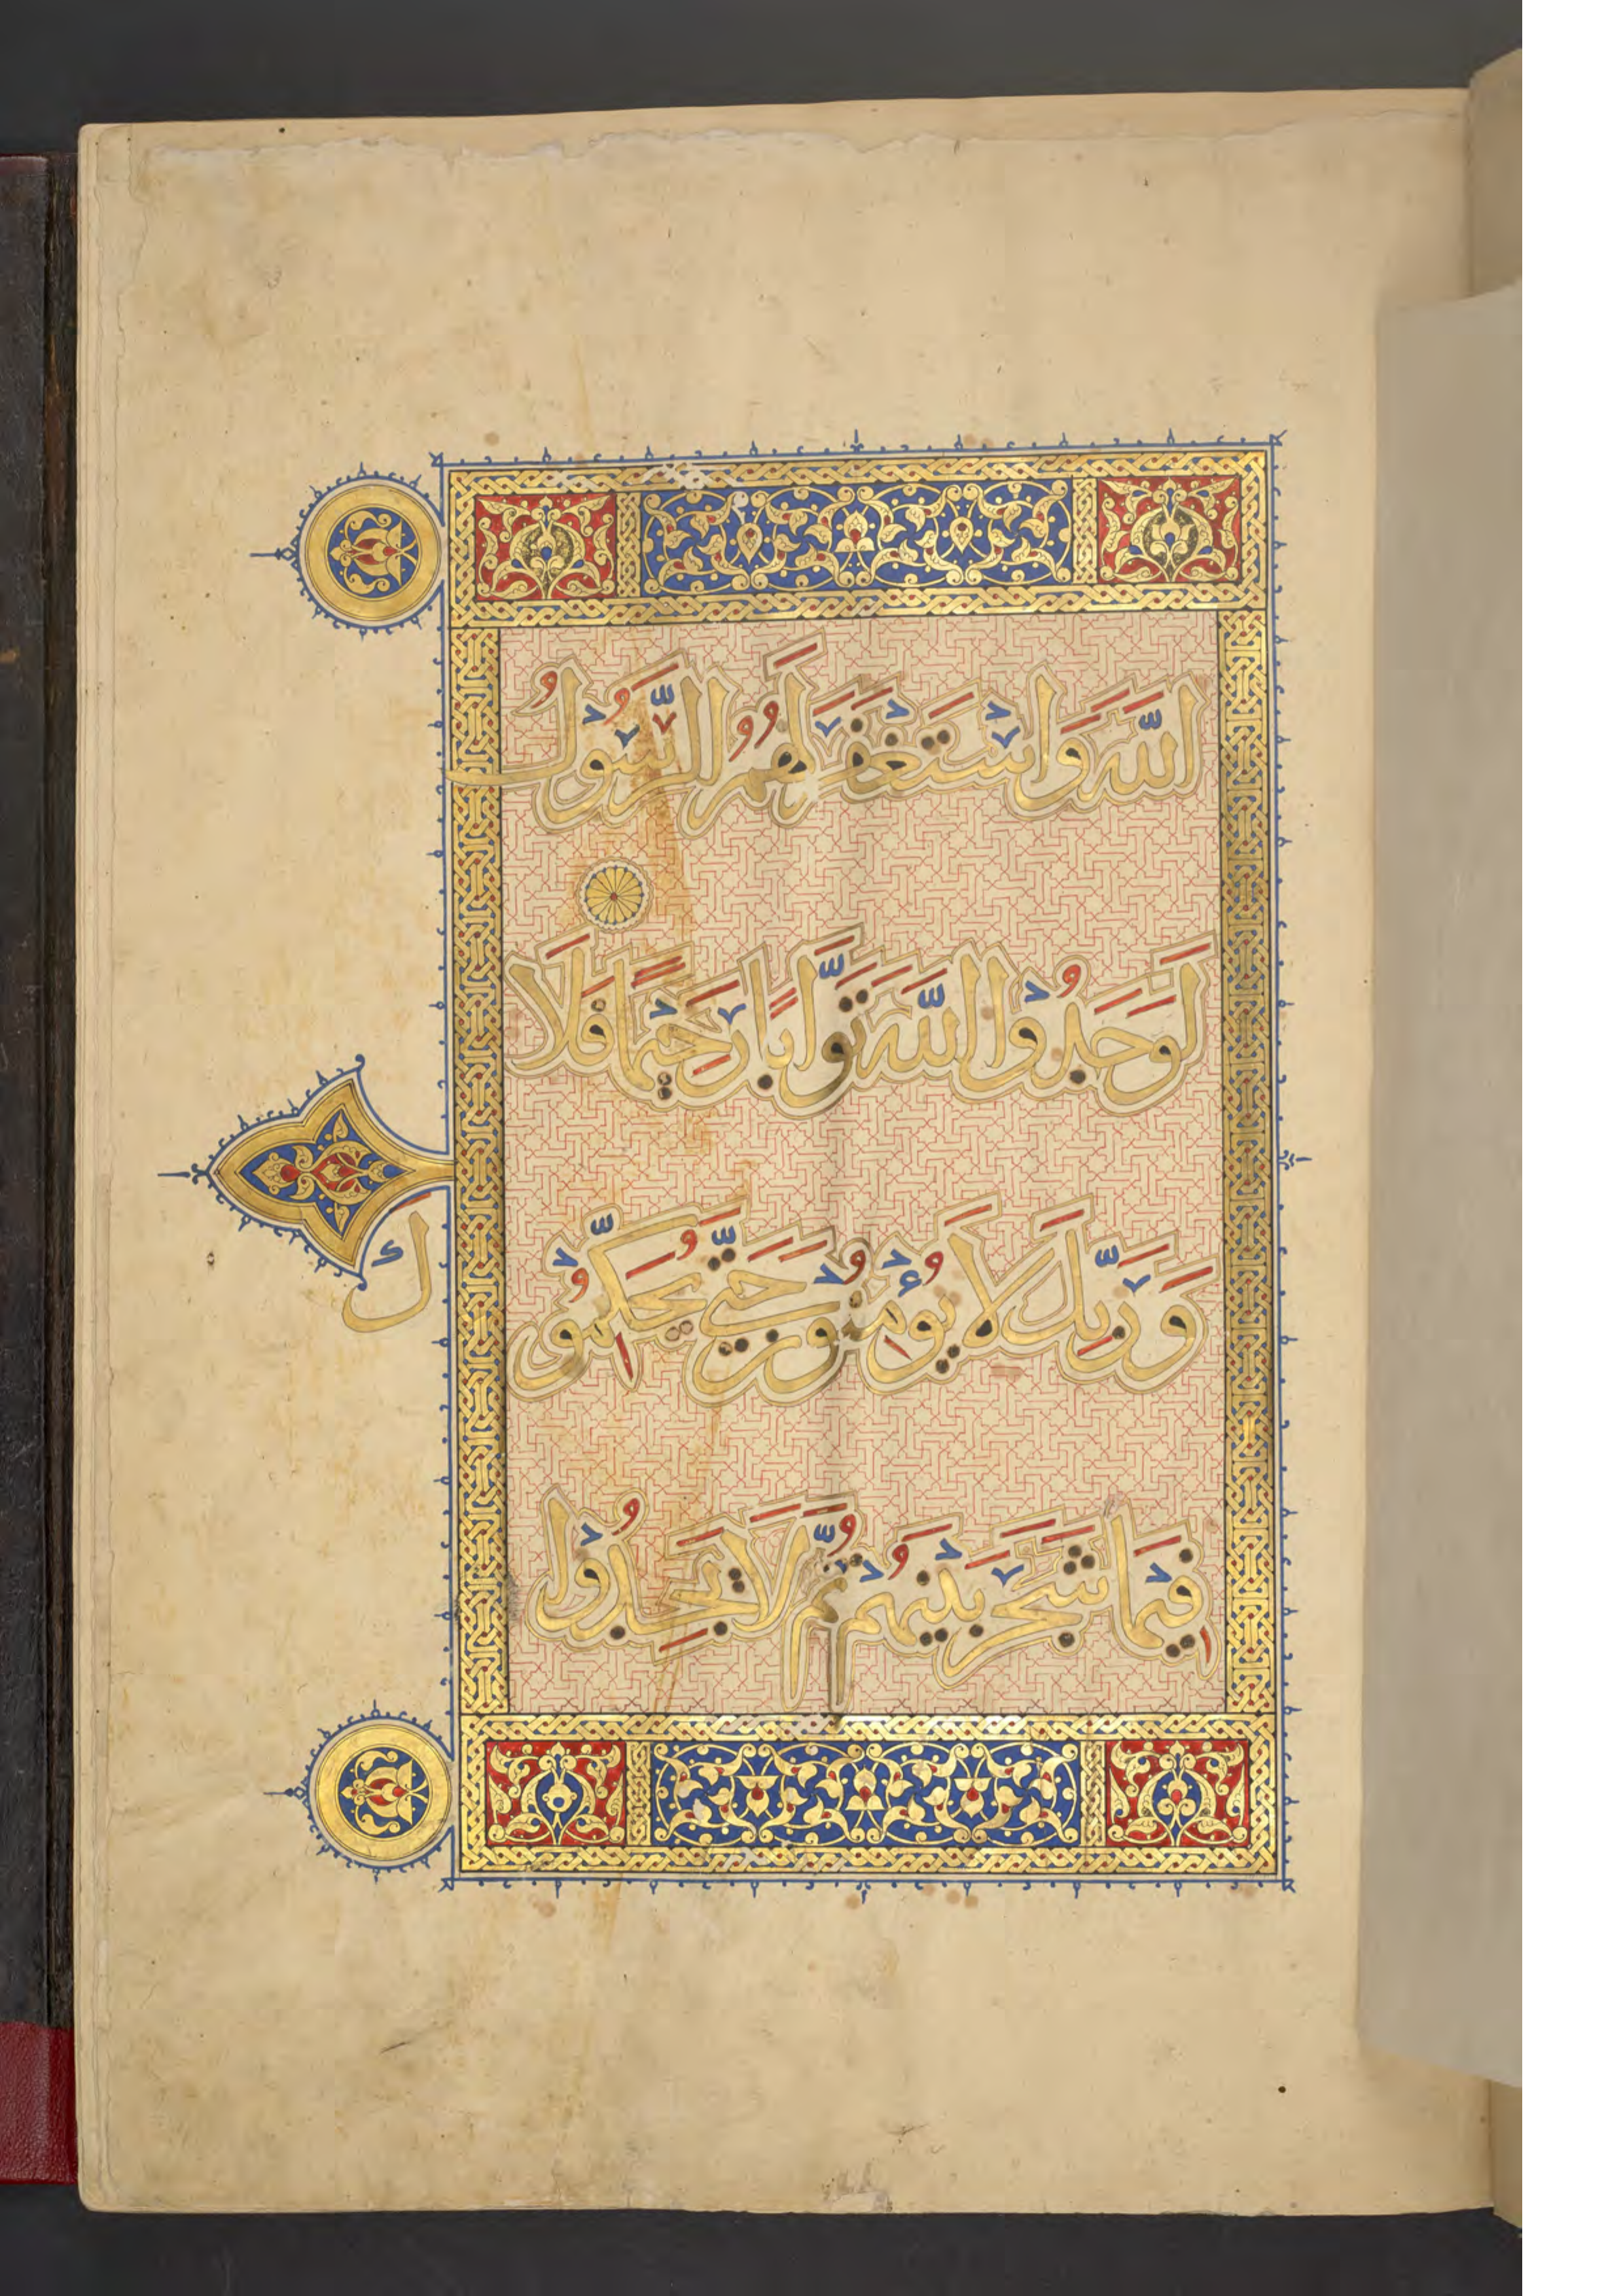 اللَّهَ وَاسْتَغْفَرَ لَهُمُ الرَّسُوْلُ
لَوَجَدُوْا اللَّهَ تَوَّابًا رَحِيْمًا فَلَا
وَرَبِّكَ لَا يُؤْمِنُوْنَ حَتَّى يُحَكِّمُوْكَ
فِيْمَا شَجَرَ بَيْنَهُمْ ثُمَّ لَا يَجِدُوْا